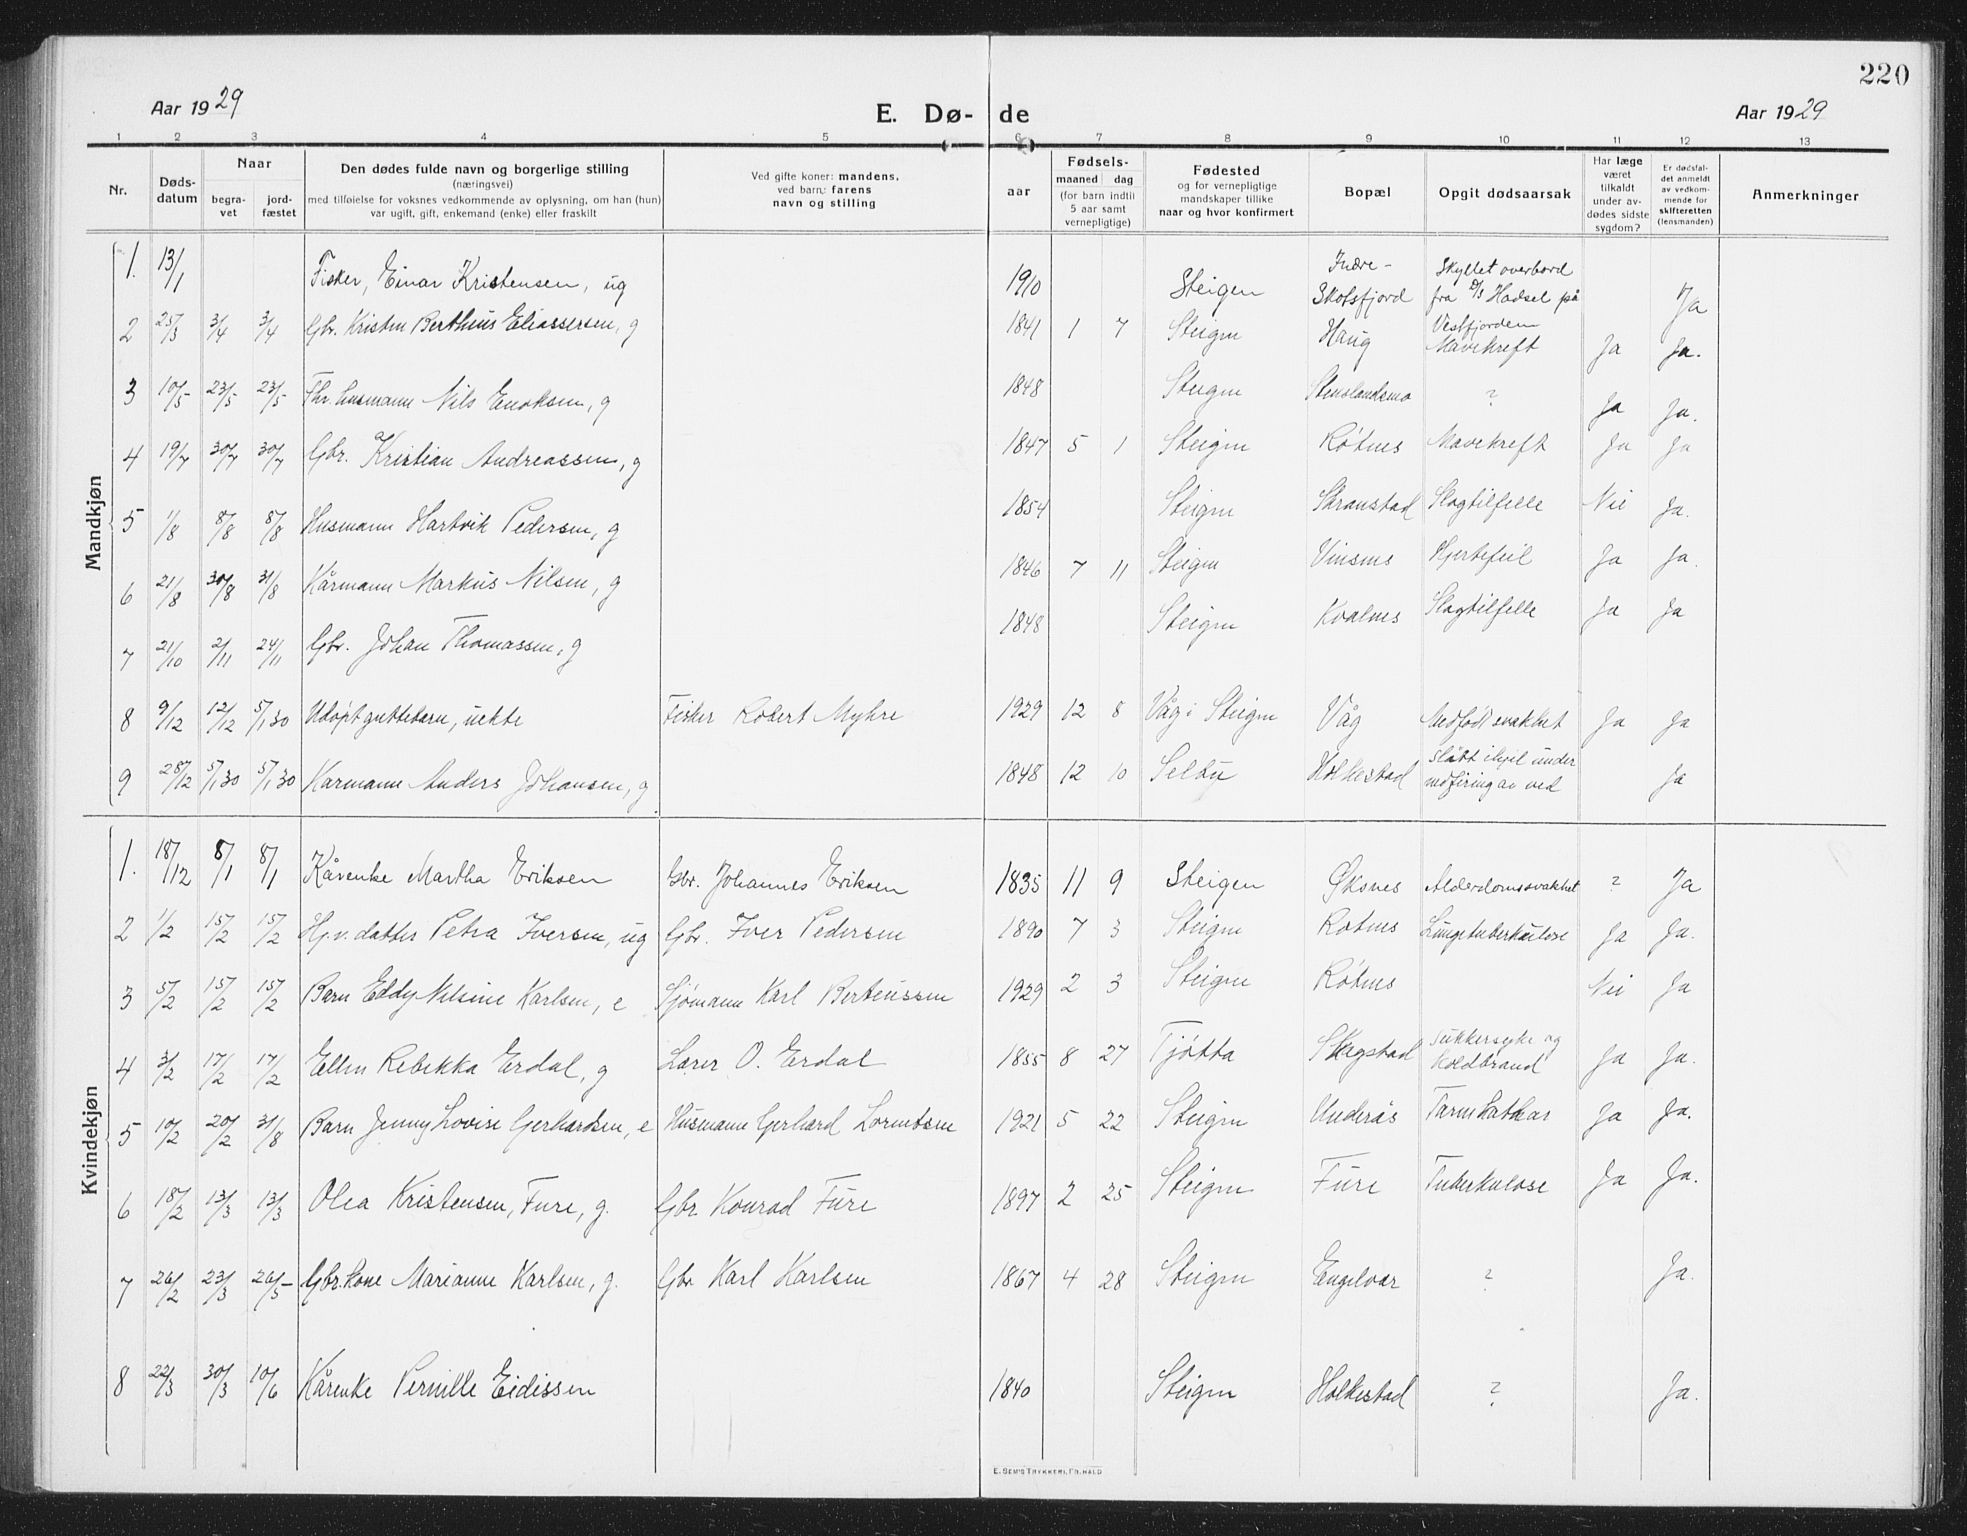 220
Aar 1929
E. Dø- de
Aar 1929
1 2 3 4 5 6 7 8 9 10 11 12 13
Nr.
Døds-
datum
Naar
begra-
vet
jord-
fæstet
Den dødes fulde navn og borgerlige stilling
(næringsvei)
med tilføielse for voksnes vedkommende av oplysning, om han (hun)
var ugift, gift, enkemand (enke) eller fraskilt
Ved gifte koner: mandens,
ved barn: farens
navn og stilling
aar
Fødsels-
maaned dag
(for barn indtil
5 aar samt
vernepligtige)
Fødested
og for vernepligtige
mandskaper tillike
naar og hvor konfirmert
Bopæl
Opgit dødsaarsak
Har læge
været
tilkaldt
under av-
dødes sidste
sygdom?
Er dødsfal-
det anmeldt
av vedkom-
mende for
skifteretten
(lensmanden)
Anmerkninger
Mandkjøn
1. 13/1 Fisker, Einar Kristensen, ug 1910 Steigen Indre- Skotsfjord Skyllet overbord fra D/S Hadsel på Vestfjorden Ja
2 25/3 3/4 3/4 Gbr. Kristen Bertheus Eliassersen, g 1841 1 7 Steigen Haug Mavekreft Ja Ja.
3 10/5 23/5 23/5 Fhv. husmann Nils Enoksen, g 1848 Steigen Stenslandsmo ? Ja Ja.
4 19/7 30/7 30/7 Gbr. Kristian Andreassen, g 1847 5 1 Steigen Røtnes Mavekreft Ja Ja
5 1/8 8/8 8/8 Husmann Hartvik Pedersen, g 1854 Steigen Skranstad Slagtilfelle Nei Ja.
6 21/8 30/8 31/8 Kårmann Markus Nilsen, g 1846 7 11 Steigen Vinsnes Hjertefeil Ja Ja.
7 21/10 2/11 24/11 Gbr. Johan Thomassen, g 1848 Steigen Kvalnes Slagtilfelle Ja Ja
8 9/12 12/12 5/1 30 Udøpt guttebarn, uekte Fisker Robert Myhre 1929 12 8 Våg i Steigen Våg Medfødt svakhet Ja Ja
9 28/12 5/1 30 5/1 30 Karmann Anders Johansen, g. 1848 12 10 Selbu Holkestad Slått ihjel under nedfiring av ved Ja
Kvindekjøn
1. 18/12 8/1 8/1 Kårenke Martha Eriksen Gbr. Johannes Eriksen 1835 11 9 Steigen Øksnes Alderdomssvakhet ? Ja
2 1/2 15/2 15/2 Hj.v. datter Petra Iversen, ug Gbr. Iver Pedersen 1890 7 3 Steigen Rotnes Lungetuberkulose Ja Ja.
3 5/2 15/2 15/2 Barn Eddy Nilsine Karlsen, e Sjømann Karl Berteussen 1929 2 3 Steigen Røtnes Nei Ja
4 3/2 17/2 17/2 Ellen Rebekka Erdal, g Lærer O. Erdal 1855 8 27 Tjøtta Skagstad Sukkersyke og Koldbrand Ja Ja.
5 10/2 20/2 31/8 Barn Jenny Lovise Gerhardsen, e Husmann Gerhard Lorentsen 1921 5 22 Steigen Underås Tarmkatharr Ja Ja.
6 18/2 13/3 13/3 Olea Kristensen, Fure, g. Gbr Konrad Fure 1897 2 25 Steigen Fure Tuberkulose Ja Ja.
7 26/2 23/3 26/5 Gbr.kone Marianne Karlsen, g. Gbr Karl Karlsen 1867 4 28 Steigen Engelvær ? Ja.
8 22/3 30/3 10/6 Kårenke Pernille Eidissen 1840 Steigen Holkestad ? Ja.
E. SEM'S TRYKKERI, FR.HALD